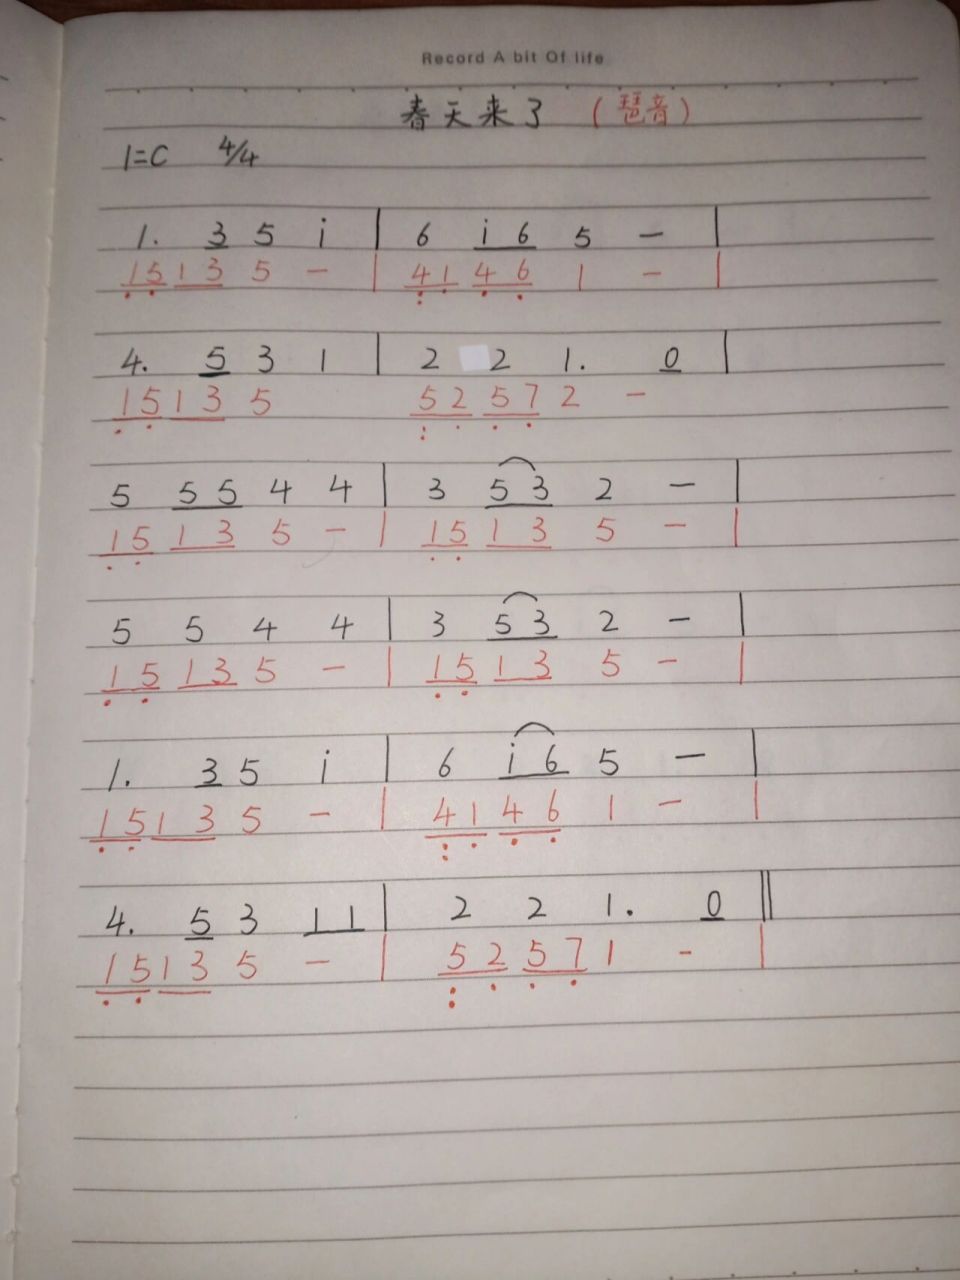 Record A bit Of life
春天来了 (琶音)
1=C 4/4
1. 3 5 i | 6 i 6 5 – |
1 5 1 3 5 – | 4 1 4 6 1 – |
4. 5 3 1 | 2 2 1. 0 |
1 5 1 3 5 5 2 5 7 2 –
5 5 5 4 4 | 3 5 3 2 – |
1 5 1 3 5 – | 1 5 1 3 5 – |
5 5 4 4 | 3 5 3 2 – |
1 5 1 3 5 – | 1 5 1 3 5 – |
1. 3 5 i | 6 i 6 5 – |
1 5 1 3 5 – | 4 1 4 6 1 – |
4. 5 3 1 1 | 2 2 1. 0 ||
1 5 1 3 5 – | 5 2 5 7 1 – |